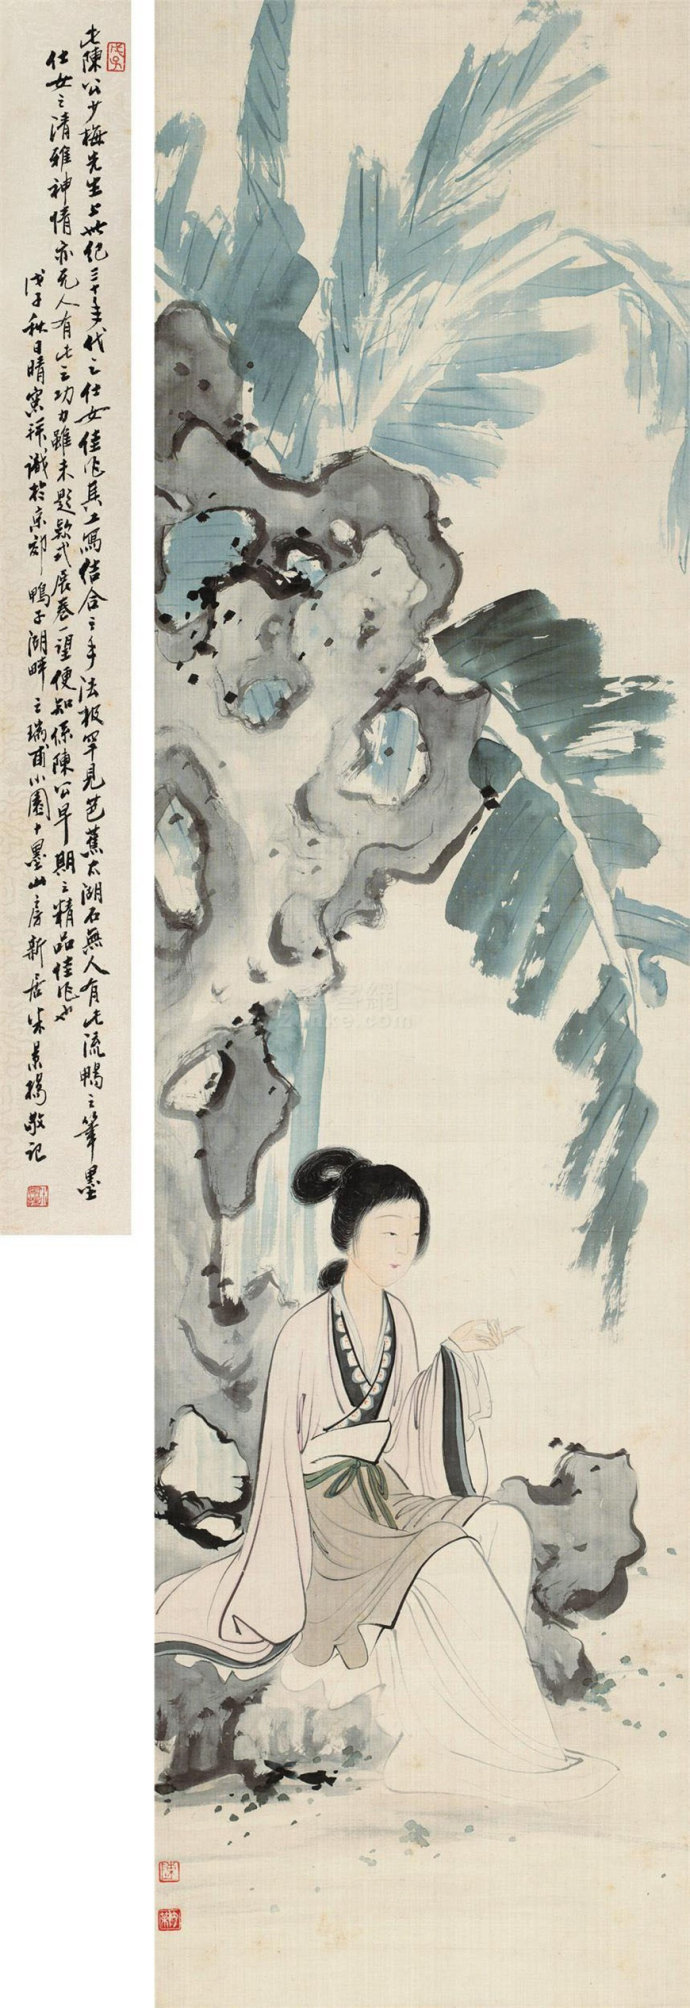 此陳公少梅先生上世纪三十年代之仕女佳作其工寫结合之手法极罕見芭蕉太湖石無人有此流畅之筆墨
仕女之清雅神情亦无人有此之功力雖未題款式展卷一望便知係陳公早期之精品佳作也
戊子秋日晴窓拜識於京郊鴨子湖畔之瑞甫小園十墨山房新居朱景揚敬记
戊子